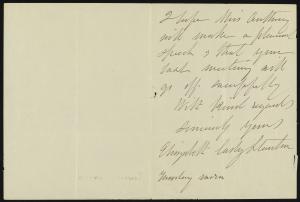 I hope Miss Anthony
will make a
speech & that your
last meeting will
go off successfully
With kind regards
sincerely yours
Elizabeth Cady Stanton